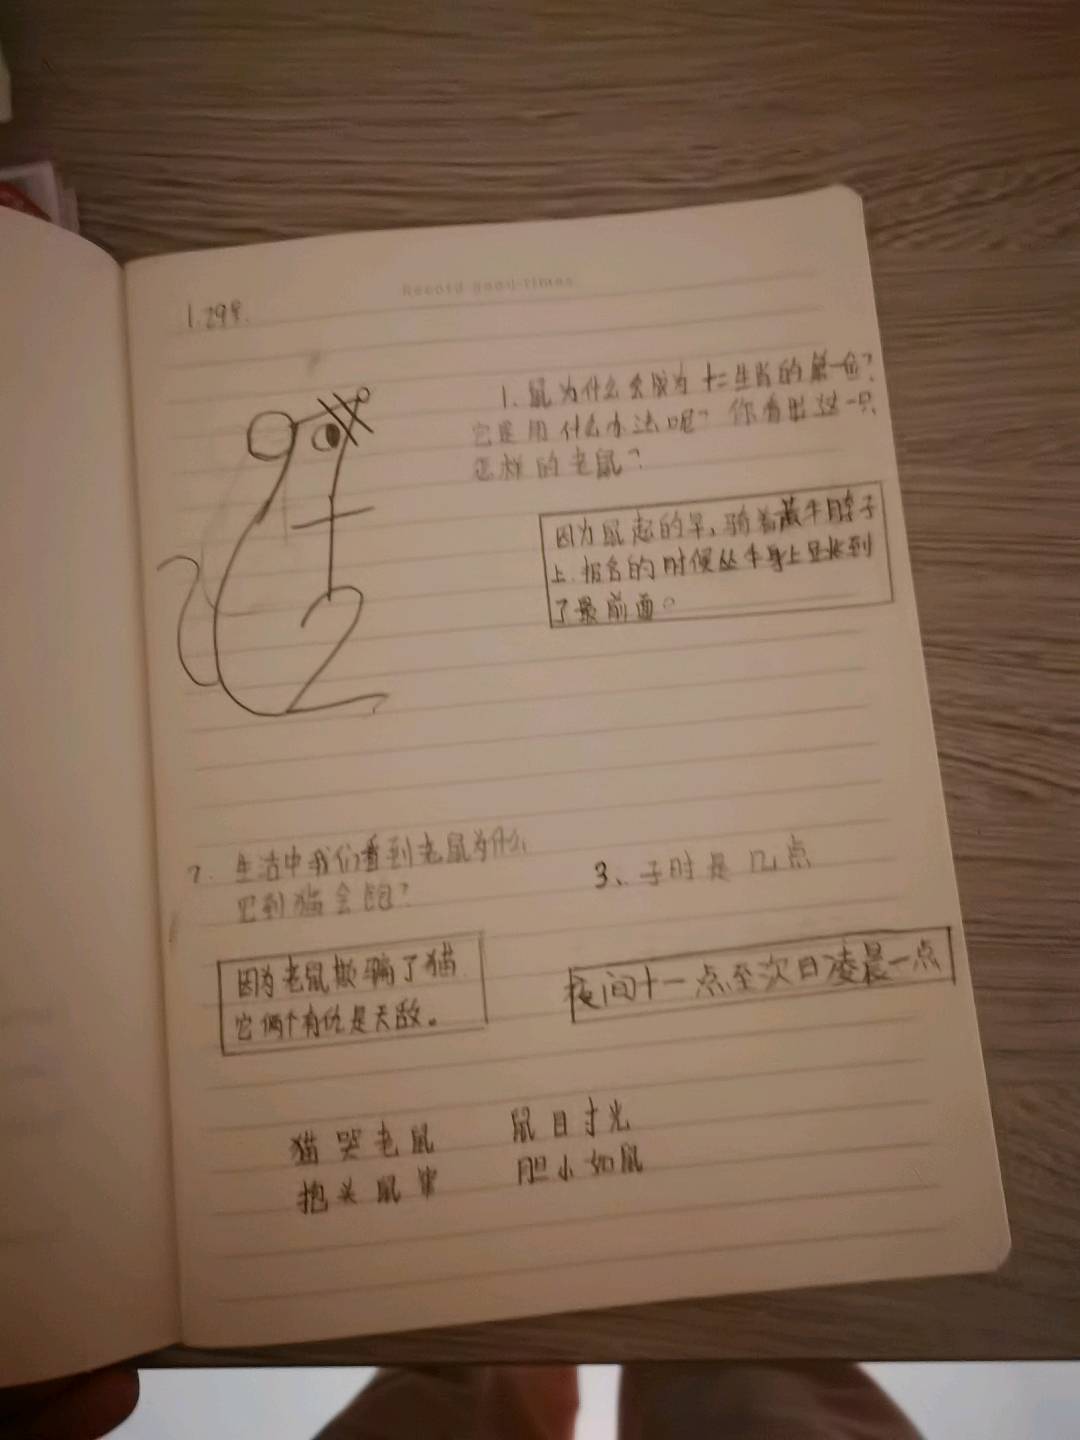 Record good times
1.29号.
1. 鼠为什么会成为十二生肖的第一位?
它是用什么办法呢? 你看出这一只
怎样的老鼠?
因为鼠起的早,骑着藏牛脖子
上.报名的时候丛牛身上
了最前面。
2. 生活中我们看到老鼠为什么
见到猫会跑?
因为老鼠欺骗了猫
它俩个有仇是天敌。
3、子时是几点
夜间十一点至次日凌晨一点
猫哭老鼠 鼠目寸光
抱头鼠窜 胆小如鼠